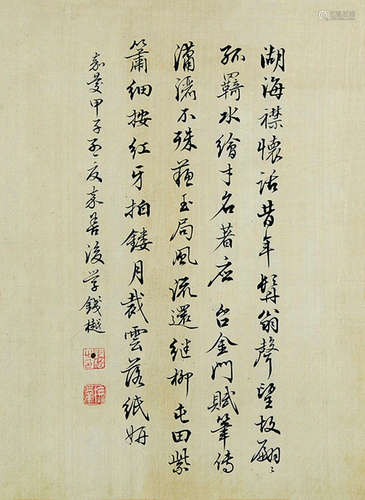 湖海襟懷話昔年髯翁聲望故翩〻
孤羇水繪才名著應 召金門賦筆傳
瀟灑不殊蘇玉局風流還繼柳屯田紫
簫細按紅牙拍鏤月裁雲落紙妍
嘉慶甲子孟夏嘉善後學錢樾